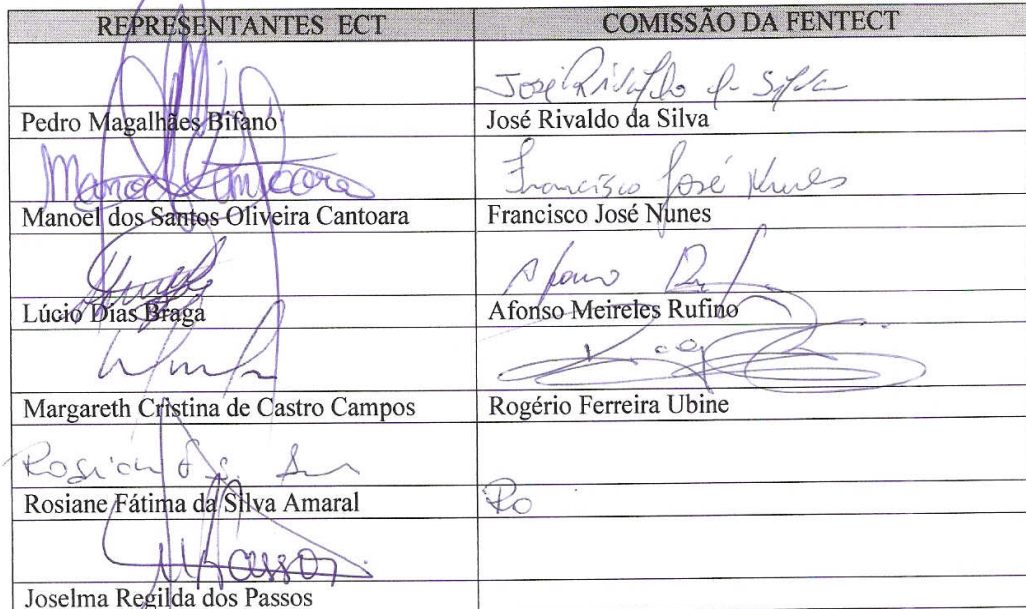 REPRESENTANTES ECT COMISSÃO DA FENTECT
José Rivaldo da Silva
Pedro Magalhães Bifano José Rivaldo da Silva
Manoel Cantoara Francisco José Nunes
Manoel dos Santos Oliveira Cantoara Francisco José Nunes
Afonso
Lúcio Dias Braga Afonso Meireles Rufino
Margareth Cristina de Castro Campos Rogério Ferreira Ubine
Rosiane F. S.
Rosiane Fátima da Silva Amaral Ro
Joselma Regilda dos Passos